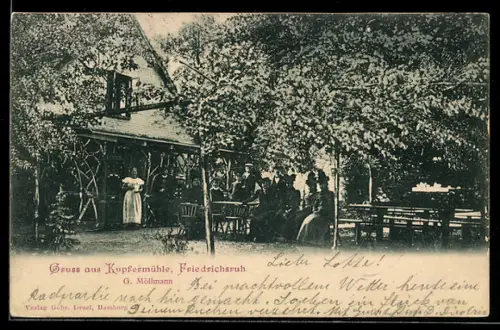 Gruss aus Kupfermühle, Friedrichsruh
G. Möllmann
Liebe Lotte!
Bei prachtvollem Wetter heute eine
Radpartie nach hier gemacht. Soeben ein Stück von
Deinem Kuchen verzehrt. Mit
Verlag Gebr. Israel, Hamburg